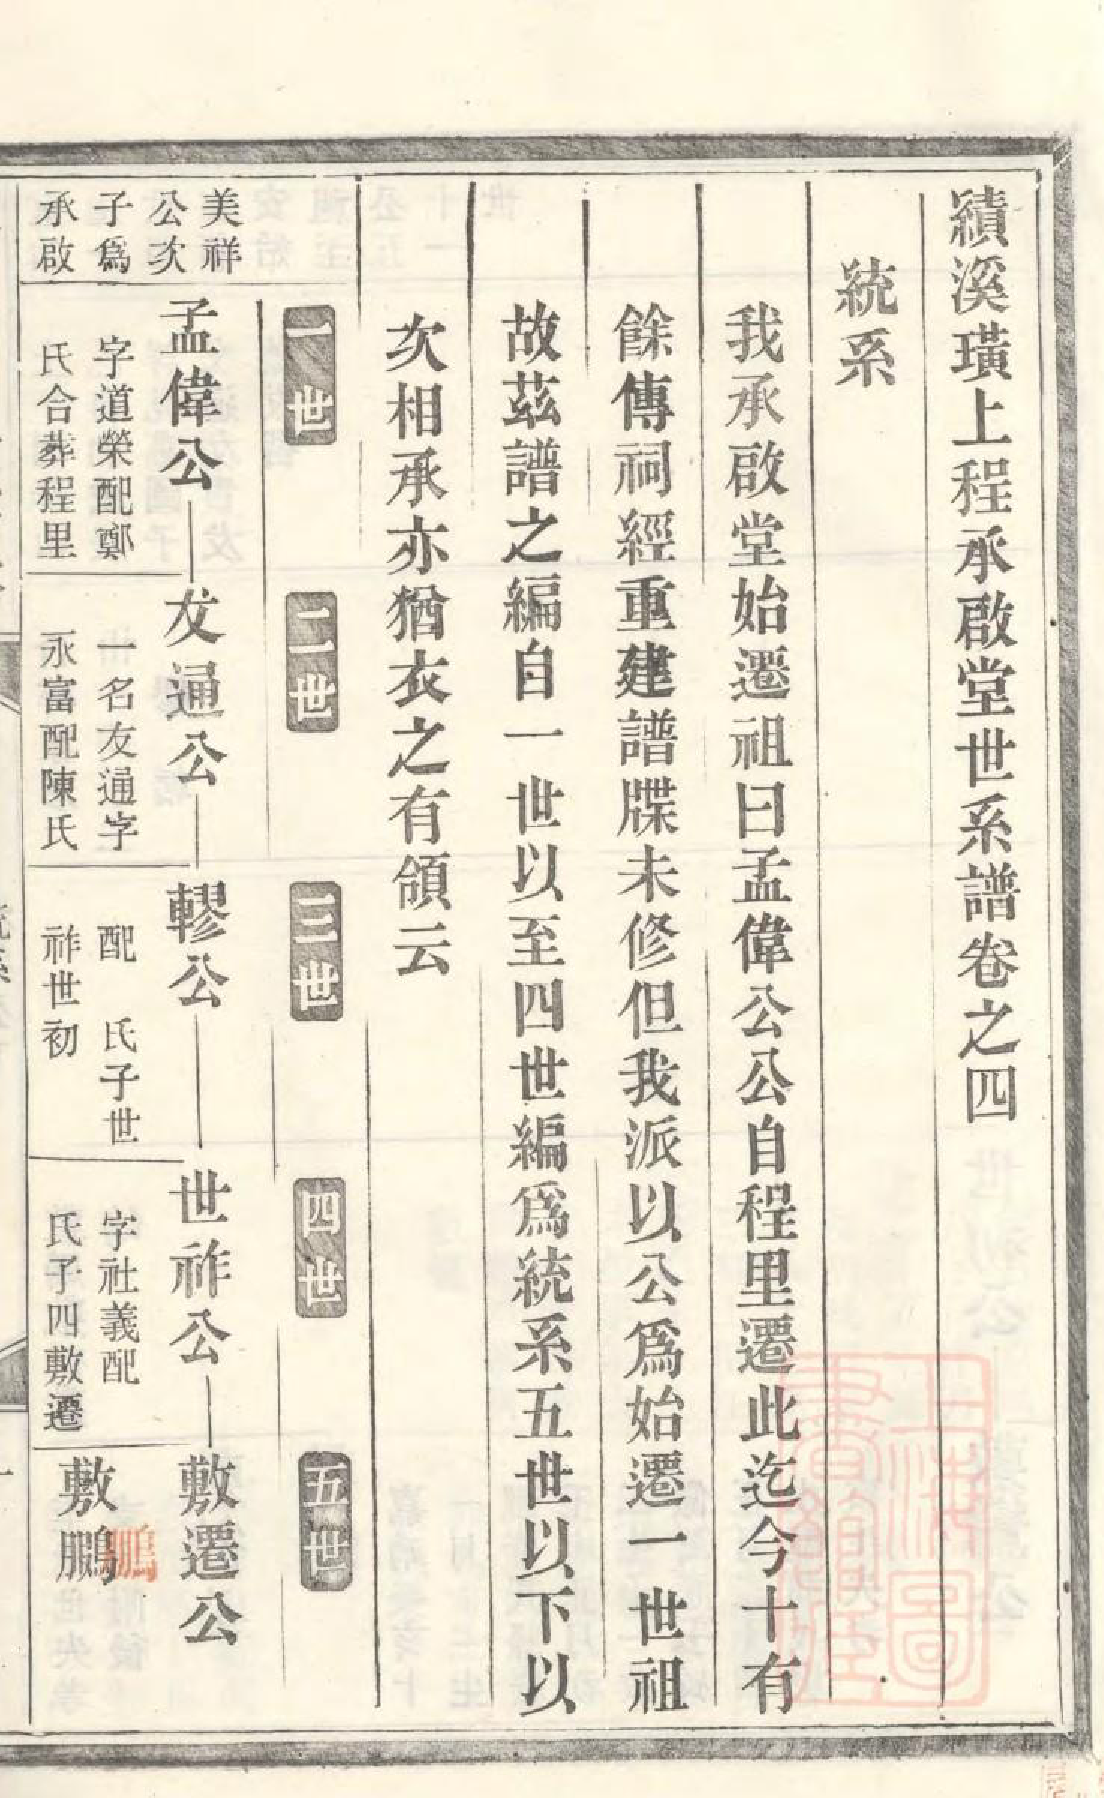 績溪璜上程承啟堂世系譜卷之四
統系
我承啟堂始遷祖曰孟偉公公自程里遷此迄今十有
餘傳祠經重建譜牒未修但我派以公爲始遷一世祖
故茲譜之編自一世以至四世編爲統系五世以下以
次相承亦猶衣之有領云
一世
二世
三世
四世
五世
美祥
公次
子爲
承啟
孟偉公
友通公
轇公
世祚公
敷遷公
字道榮配鄭
氏合葬程里
一名友通字
永富配陳氏
配 氏子世
祚世初
字社義配
氏子四敷遷
敷鵬
鵬